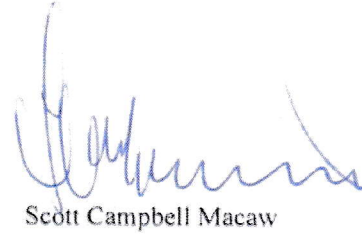 Scott Campbell Macaw